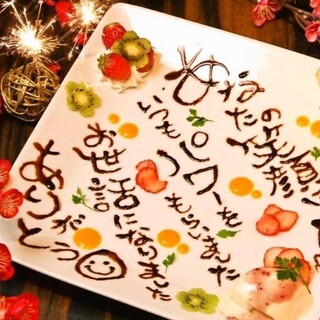 あなた
の笑顔に
いつもパワーを
もらいました
お世話になりました
ありがとう